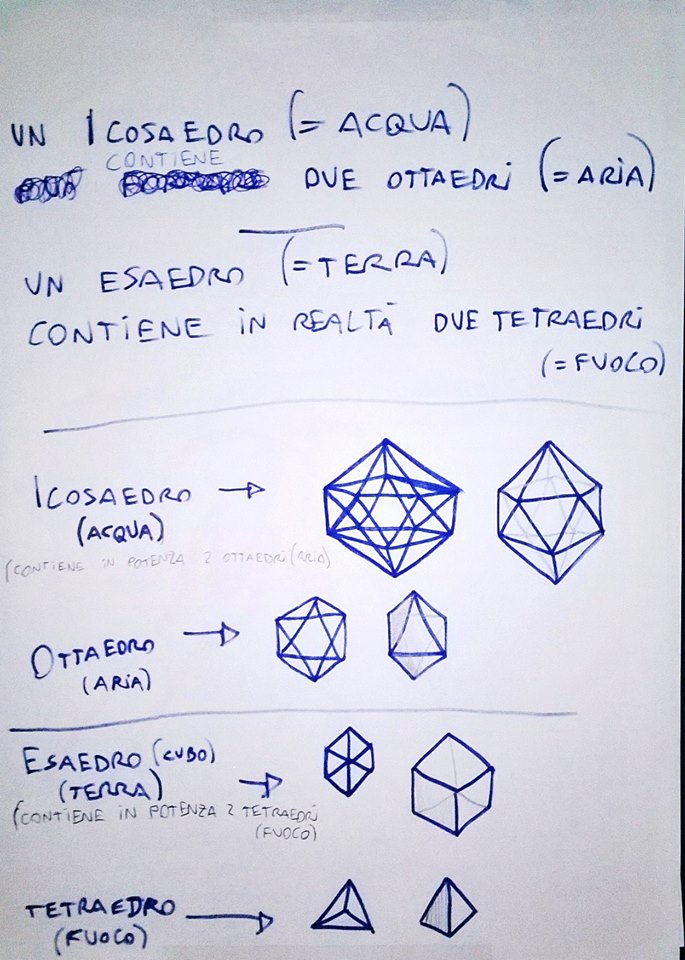 UN ICOSAEDRO (= ACQUA)
CONTIENE
DUE OTTAEDRI (= ARIA)
UN ESAEDRO (= TERRA)
CONTIENE IN REALTÀ DUE TETRAEDRI
(= FUOCO)
ICOSAEDRO
(ACQUA)
(CONTIENE IN POTENZA 2 OTTAEDRI (ARIA)
OTTAEDRO
(ARIA)
ESAEDRO (CUBO)
(TERRA)
(CONTIENE IN POTENZA 2 TETRAEDRI
(FUOCO)
TETRAEDRO
(FUOCO)